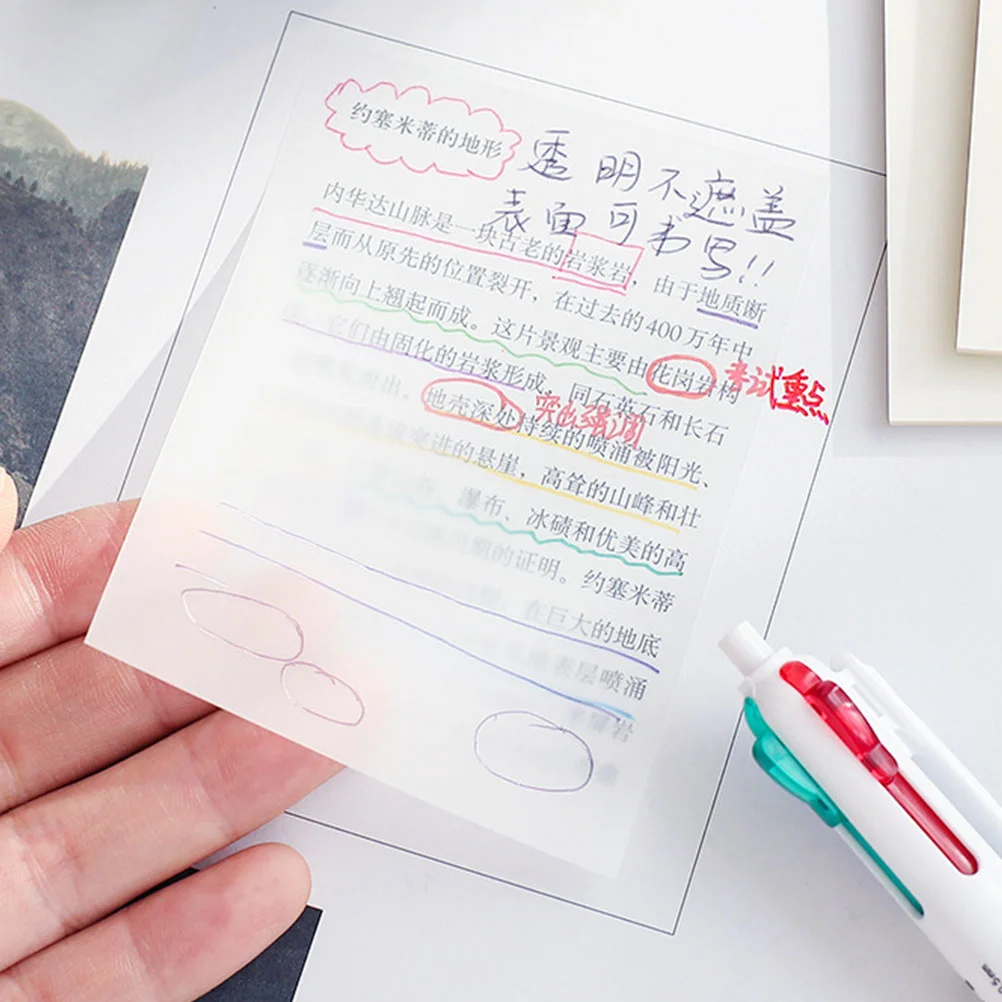 约塞米蒂的地形
透明不遮盖
表面可书写!!
内华达山脉是一块古老的岩浆岩，由于地质断
层而从原先的位置裂开，在过去的400万年中
逐渐向上翘起而成。这片景观主要由花岗岩构
考试重点
它们由固化的岩浆形成，同石英石和长石
出。地壳深处持续的喷涌被阳光、
突出强调
进的悬崖，高耸的山峰和壮
瀑布、冰碛和优美的高
的证明。约塞米蒂
在巨大的地底
表层喷涌
岩